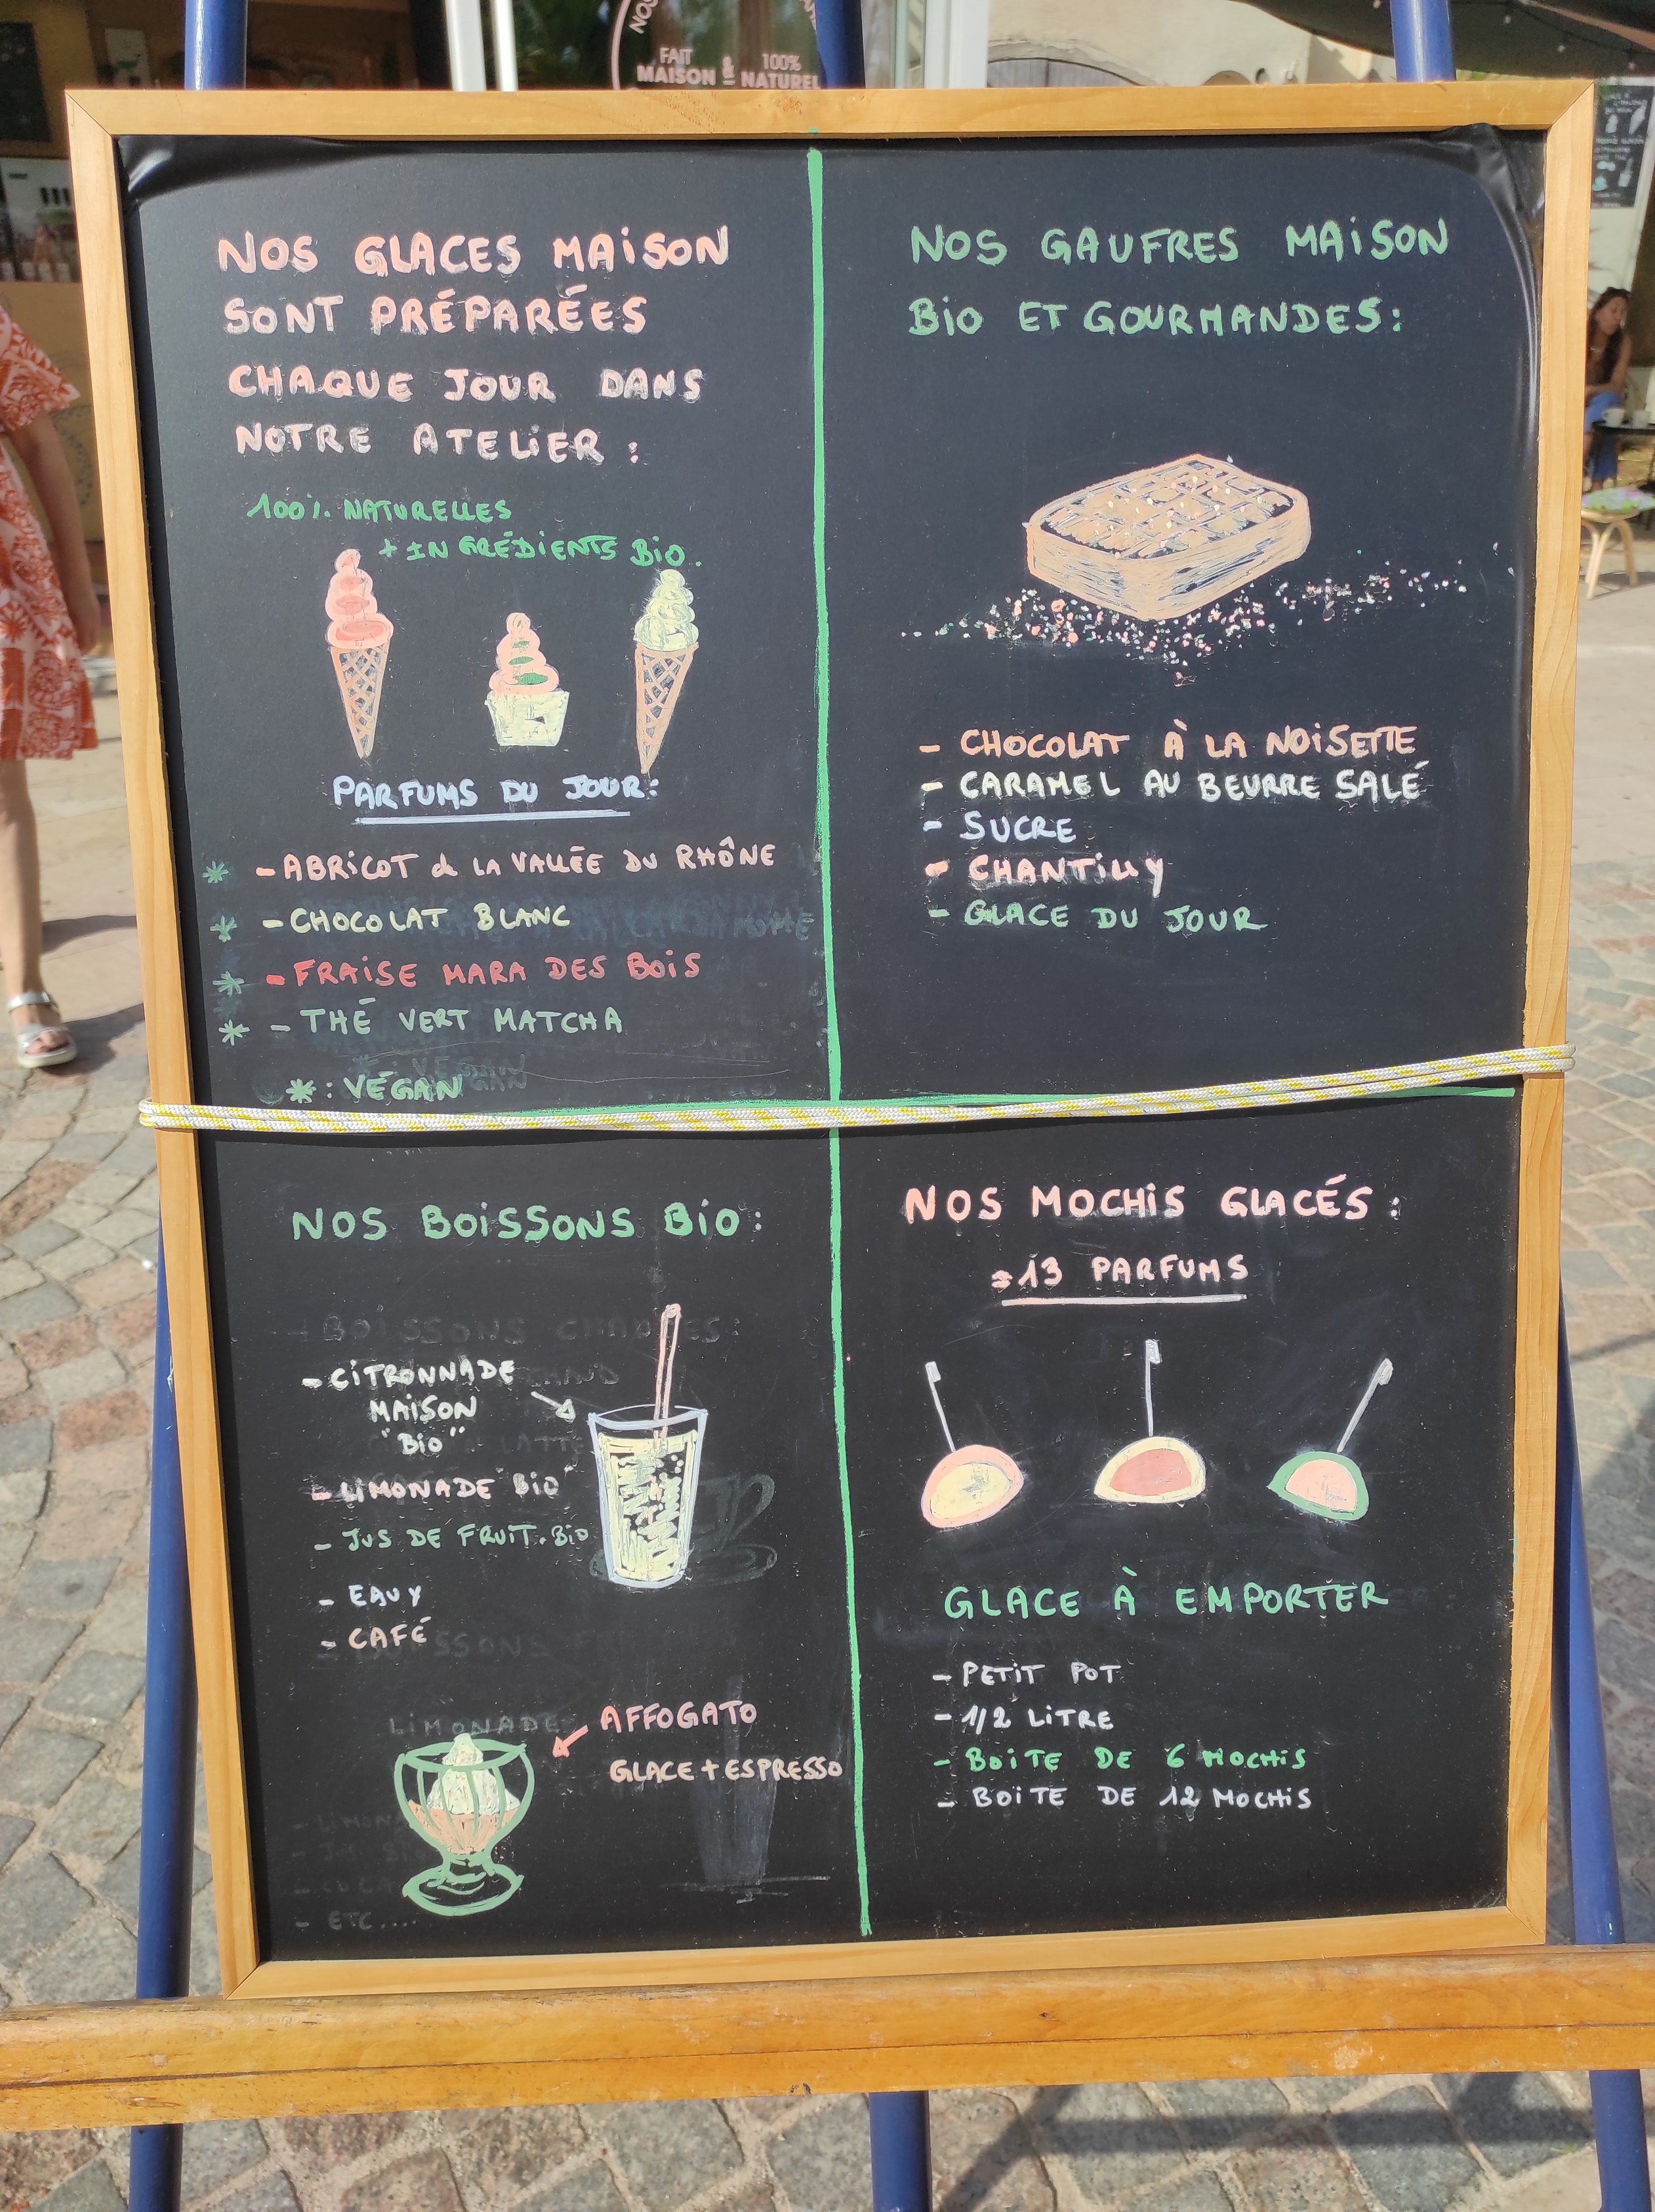 FAIT
MAISON & 100% NATUREL
NOS GLACES MAISON
SONT PRÉPARÉES
CHAQUE JOUR DANS
NOTRE ATELIER :
100% NATURELLES
+ INGRÉDIENTS BIO.
PARFUMS DU JOUR:
* - ABRICOT de LA VALLÉE DU RHÔNE
* - CHOCOLAT BLANC
* - FRAISE MARA DES BOIS
* - THÉ VERT MATCHA
* : VÉGAN
NOS GAUFRES MAISON
BIO ET GOURMANDES:
- CHOCOLAT À LA NOISETTE
- CARAMEL AU BEURRE SALÉ
- SUCRE
- CHANTILLY
- GLACE DU JOUR
NOS BOISSONS BIO:
- CITRONNADE
MAISON
"BIO"
- LIMONADE "BIO"
- JUS DE FRUIT.BIO
- EAUX
- CAFÉ
LIMONADE
AFFOGATO
GLACE + ESPRESSO
- ETC....
NOS MOCHIS GLACÉS :
13 PARFUMS
GLACE À EMPORTER
- PETIT POT
- 1/2 LITRE
- BOITE DE 6 MOCHIS
- BOITE DE 12 MOCHIS